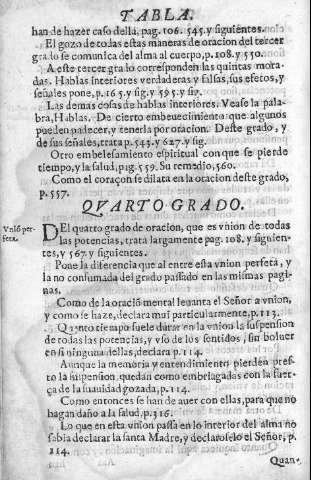 TABLA.
han de hazer caso della, pag. 106. 545. y siguientes.
El gozo de todas estas maneras de oracion del tercer
grado se comunica del alma al cuerpo, p. 108. y 550.
A este tercer grado corresponden las quintas mora-
das. Hablas interiores verdaderas y falsas, sus efetos, y
señales pone, p. 165. y sig. y 595. y sig.
Las demas cosas de hablas interiores. Vease la pala-
bra, Hablas. De cierto embeuecimiento que algunos
pueden padecer, y tenerla por oracion. Deste grado, y
de sus señales, trata p. 543. y 627. y sig.
Otro embelesamiento espiritual con que se pierde
tiempo, y la salud, pag. 559. Su remedio, 560.
Como el coraçon se dilata en la oracion deste grado,
p. 557.
QVARTO GRADO.
Vnió per-
feta.
DEl quarto grado de oracion, que es vnion de todas
las potencias, trata largamente pag. 108. y siguien-
tes, y 567. y siguientes.
Pone la diferencia que ai entre esta vnion perfeta, y
la no consumada del grado passado en las mismas pagi-
nas.
Como de la oració mental leuanta el Señor a vnion,
y como se haze, declara mui particularmente, p. 113.
Quanto tiempo suele durar en la vnion la suspension
de todas las potencias, y vso de los sentidos, sin boluer
en si ninguna dellas, declara p. 114.
Aunque la memoria y entendimiento pierden pres-
to la suspension, quedan como embelagadas con la fuer-
ça de la suauidad gozada, p. 114.
Como entonces se han de auer con ellas, para que no
hagan daño a la salud, p. 316.
Lo que en esta vnion passa en lo interior del alma no
sabia declarar la santa Madre, y declaroselo el Señor, p.
114.
Quan-